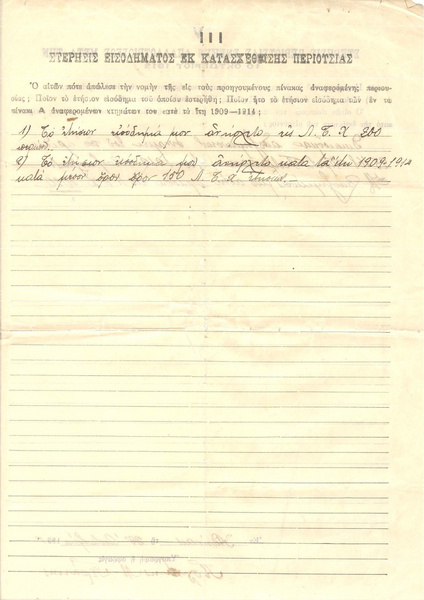 III
ΣΤΕΡΗΣΙΣ ΕΙΣΟΔΗΜΑΤΟΣ ΕΚ ΚΑΤΑΣΧΕΘΕΙΣΗΣ ΠΕΡΙΟΥΣΙΑΣ
Ὁ αἰτῶν πότε ἀπώλεσε τὴν νομὴν τῆς εἰς τοὺς προηγουμένους πίνακας ἀναφερομένης περιου-
σίας; Ποῖον τὸ ἐτήσιον εἰσόδημα τοῦ ὁποίου ἐστερήθη; Ποῖον ἦτο τὸ ἐτήσιον εἰσόδημα τῶν (ἐν τῷ
πίνακι Α ἀναφερομένων κτημάτων του κατὰ τὰ ἔτη 1909-1914;
1) Τὸ ἐτήσιον εἰσόδημά μου ἀνήρχετο εἰς Λ. Τ. Χ 200
2) Τὸ ἐτήσιον εἰσόδημά μου ἀνήρχετο κατὰ τὰ ἔτη 1909-1914
κατὰ μέσον ὅρον πρὸς 150 Λ. Τ. Χ ἐτησίως.-